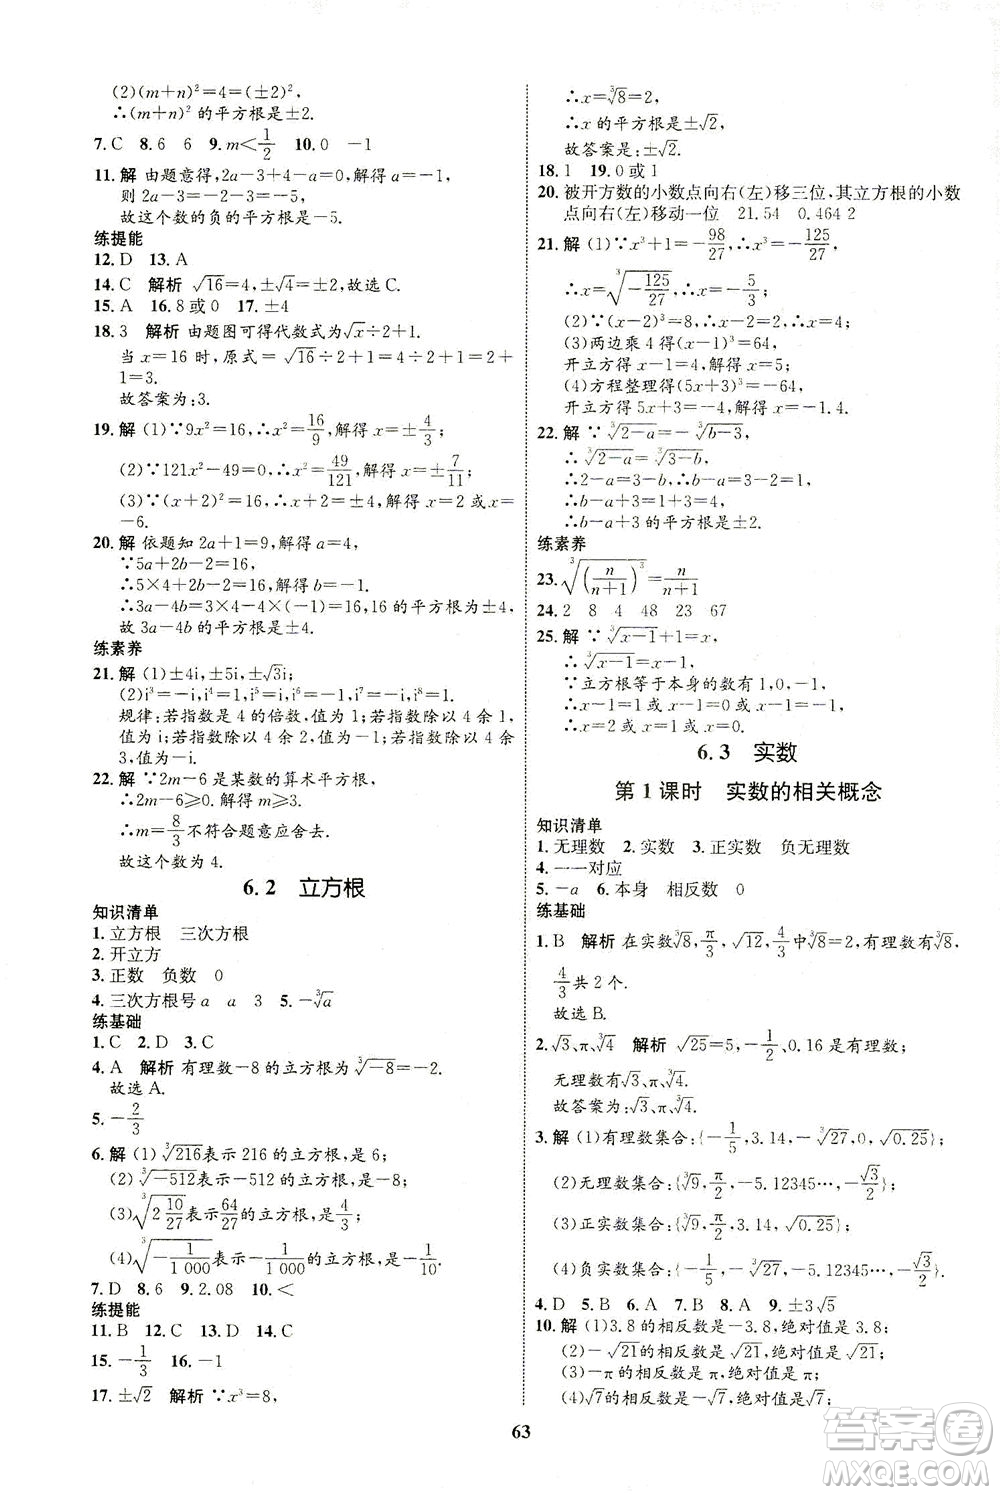 (2)(m+n)²=4=(±2)²,
∴(m+n)² 的平方根是±2.
7.C 8.6 6 9.m<1/2 10.0 -1
11.解 由题意得,2a-3+4-a=0,解得a=-1,
则 2a-3=-2-3=-5.
故这个数的负的平方根是-5.
练提能
12.D 13.A
14.C 解析 √16=4,±√4=±2,故选C.
15.A 16.8或0 17.±4
18.3 解析 由题图可得代数式为√x÷2+1.
当 x=16 时,原式=√16÷2+1=4÷2+1=2+
1=3.
故答案为:3.
19.解 (1)∵9x²=16,∴x²=16/9,解得 x=±4/3;
(2)∵121x²-49=0,∴x²=49/121,解得x=±7/11;
(3)∵(x+2)²=16,∴x+2=±4,解得 x=2 或 x=
-6.
20.解 依题知 2a+1=9,解得 a=4,
∵5a+2b-2=16,
∴5×4+2b-2=16,解得b=-1,
∴3a-4b=3×4-4×(-1)=16,16的平方根为±4,
故 3a-4b 的平方根为±4.
练素养
21.解 (1)±4i,±5i,±√3i;
(2)i³=-i,i⁴=1,i⁵=i,i⁶=-1,i⁷=-i,i⁸=1,
规律:若指数是 4 的倍数,值为 1;若指数除以 4 余 1,
值为 i;若指数除以 4 余 2,值为-1;若指数除以 4 余
3,值为-i.
22.解 ∵2m-6是某数的算术平方根,
∴2m-6≥0.解得m≥3.
∴m=8/3不符合题意应舍去.
故这个数为 4.
6.2 立方根
知识清单
1.立方根 三次方根
2.开立方
3.正数 负数 0
4.三次方根号a a 3 5.-∛a
练基础
1.C 2.D 3.C
4.A 解析 有理数-8的立方根为∛-8=-2.
故选A.
5.-2/3
6.解 (1)∛216表示 216 的立方根,是 6;
(2)∛-512表示-512 的立方根,是-8;
(3)∛(2 10/27)表示64/27的立方根,是4/3;
(4)∛(-1/1 000)表示-1/1 000的立方根,是-1/10.
7.D 8.6 9.2.08 10.<
练提能
11.B 12.B 13.D 14.C
15.-1/3 16.-1
17.±√2 解析 ∵x³=8,
∴x=∛8=2,
∴x的平方根是±√2,
故答案是:±√2.
18.1 19.0或1
20.被开方数的小数点向右(左)移三位,其立方根的小数
点向右(左)移动一位 21.54 0.464 2
21.解 (1)∵x³+1=-98/27,∴x³=-125/27,
∴x=∛(-125/27),∴x=-5/3;
(2)∵(x-2)³=8,∴x-2=2,∴x=4;
(3)两边乘 4 得(x-1)³=64,
开立方得 x-1=4,解得 x=5;
(4)方程整理得(5x+3)³=-64,
开立方得5x+3=-4,解得x=-1.4.
22.解 ∵∛2-a=-∛b-3,
∴∛2-a=∛3-b,
∴2-a=3-b,∴b-a=3-2=1,
∴b-a+3=1+3=4,
∴b-a+3的平方根是±2.
练素养
23.∛(n/(n+1))³=n/(n+1)
24.2 8 4 48 23 67
25.解 ∵∛x-1+1=x,
∴∛x-1=x-1;
∵立方根等于本身的数有1,0,-1,
∴x-1=1或x-1=0或x-1=-1,
∴x=2或x=1或x=0.
6.3 实数
第1课时 实数的相关概念
知识清单
1.无理数 2.实数 3.正实数 负无理数
4.一一对应
5.-a 6.本身 相反数 0
练基础
1.B 解析 在实数∛8,π/3,√12,4/3中∛8=2,有理数有∛8,
4/3共2个.
故选B.
2.√3、π、∛4 解析 √25=5、-1/2、0.16是有理数;
无理数有√3、π、∛4.
故答案为:√3、π、∛4.
3.解 (1)有理数集合:{-1/5,3.14,-∛27,0,√0.25};
(2)无理数集合:{∛9,π/2,-5.12345…,-√3/2};
(3)正实数集合:{∛9,π/2,3.14,√0.25};
(4)负实数集合:{-1/5,-∛27,-5.12345…,-√3/2}.
4.D 5.B 6.C 7.A 8.A 9.±3√5
10.解 (1)3.8的相反数是-3.8,绝对值是3.8;
(2)-√21的相反数是√21,绝对值是√21;
(3)-π的相反数是π,绝对值是π;
(4)√7的相反数是-√7,绝对值是√7;
63
答案圈
MXQE.COM